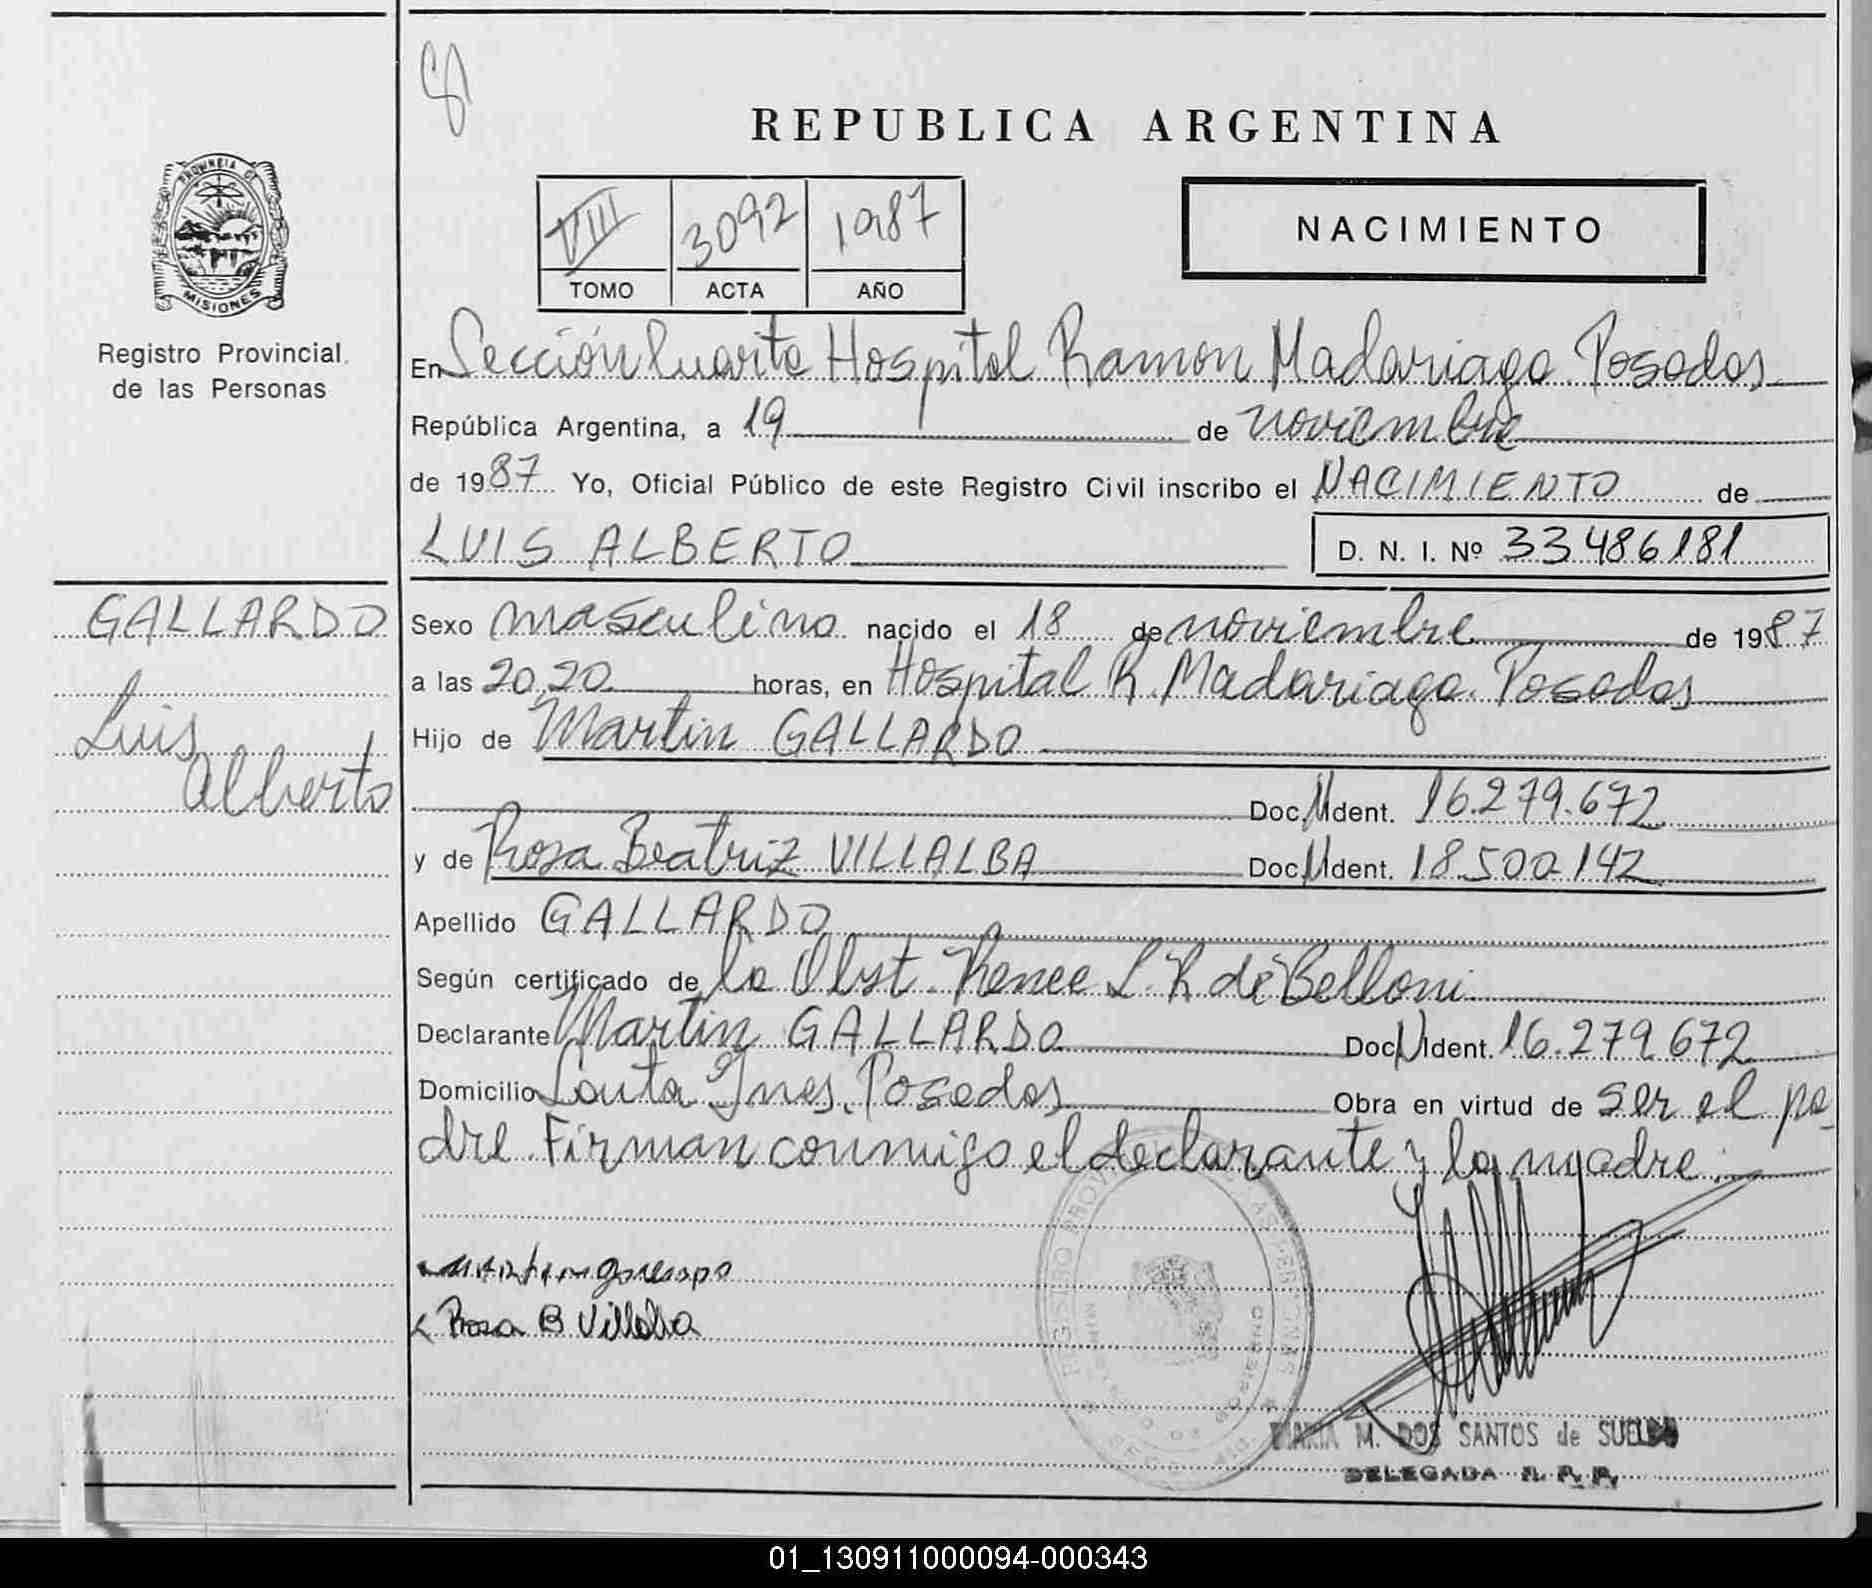 REPUBLICA ARGENTINA
PROVINCIA DE
MISIONES
Registro Provincial
de las Personas
VIII 3092 1987
TOMO ACTA AÑO
NACIMIENTO
En Sección Cuarta Hospital Ramon Madariaga Posadas
República Argentina, a 19 de noviembre
de 1987 Yo, Oficial Público de este Registro Civil inscribo el NACIMIENTO de
LUIS ALBERTO D. N. I. Nº 33.486.181
GALLARDO
Luis
Alberto
Sexo masculino nacido el 18 de noviembre de 1987
a las 20,20 horas, en Hospital R. Madariaga. Posadas
Hijo de Martin GALLARDO
Doc. Ident. 16.279.672
y de Rosa Beatriz VILLALBA Doc. Ident. 18.500.142
Apellido GALLARDO
Según certificado de la Obst. Renee L. R de Belloni
Declarante Martin GALLARDO Doc. Ident. 16.279.672
Domicilio Santa Ines. Posadas Obra en virtud de ser el pa-
dre. Firman conmigo el declarante y la madre.
Rosa B Villalba
MARIA M. DOS SANTOS de SUELDO
DELEGADA R. P. P.
01_130911000094-000343